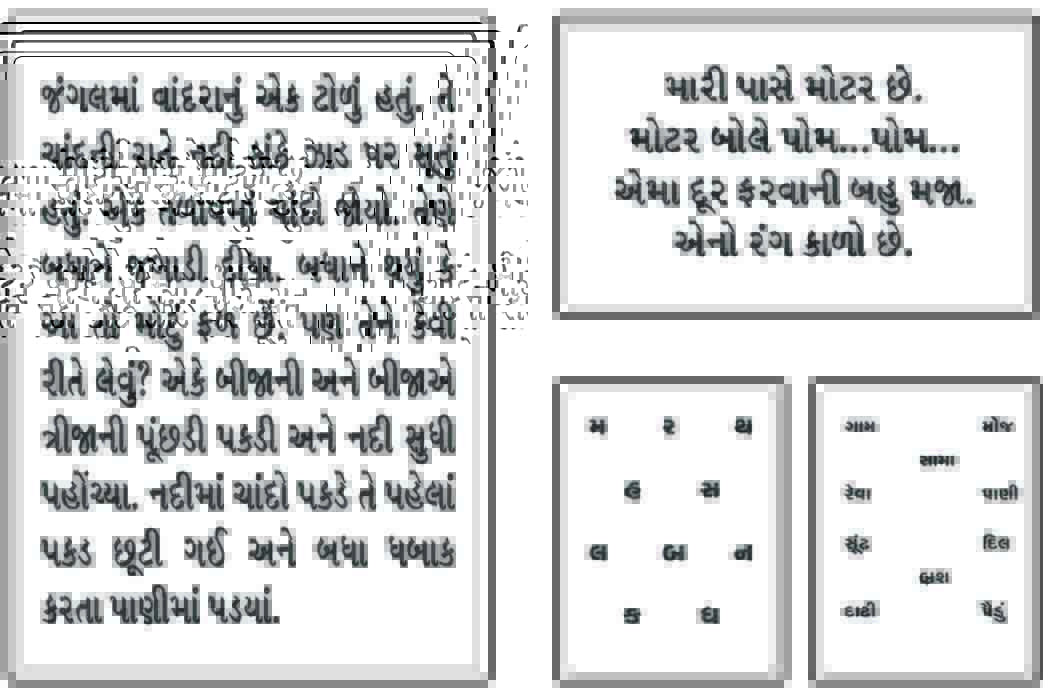 જંગલમાં વાંદરાનું એક ટોળું હતું. તે
ચાંદની રાતે નદી કાંઠે ઝાડ પર સૂતું
હતું. એકે તળાવમાં ચાંદો જોયો. તેણે
બધાંને જગાડી દીધા. બધાને થયું કે
આ તો મોટું ફળ છે. પણ તેને કેવી
રીતે લેવું? એકે બીજાની અને બીજાએ
ત્રીજાની પૂંછડી પકડી અને નદી સુધી
પહોંચ્યા. નદીમાં ચાંદો પકડે તે પહેલાં
પકડ છૂટી ગઈ અને બધા ધબાક
કરતા પાણીમાં પડયાં.
મારી પાસે મોટર છે.
મોટર બોલે પોમ...પોમ...
એમા દૂર ફરવાની બહુ મજા.
એનો રંગ કાળો છે.
મ ર થ
હ સ
લ બ ન
ક ઘ
ગામ મોજ
સામા
રેવા પાણી
સૂંઢ દિલ
બ્રશ
દાઢી પૈડું